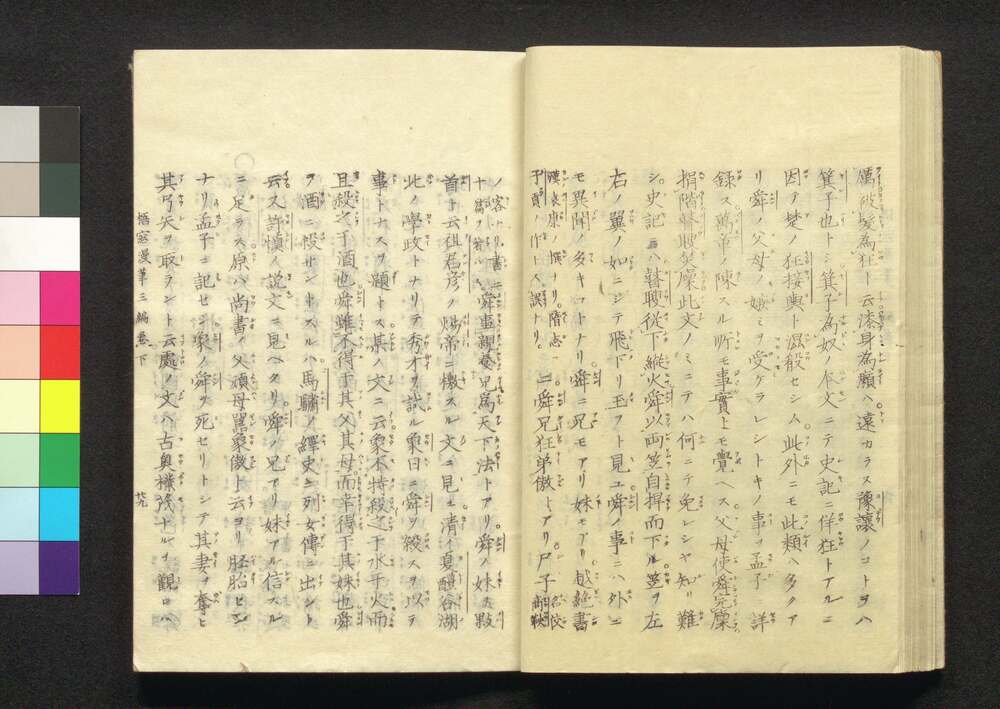 僞被髮為狂ト云漆身為厲ヘ遠カラス豫讓ノコトヲハ
箕子也ト云箕子為奴ノ本文ニテ史記ニ佯狂トアルニ
因リ楚ノ狂接輿ト混殽セシム此外ニモ此類ヘ多クア
リ舜ノ父母ノ娥ミヲ受ケラレシトキノ事ヲ孟子詳
錄ス萬章ノ陳スル所モ事實トモ覺ヘス父母使舜完廩
捐階瞽瞍焚廩此文ノミニテハ何ニテ免レシヤ知リ難
シ史記ニハ瞽瞍從下縱火舜以兩笠自捍而下ル笠ヲ左
右ノ翼ノ如ニシテ飛下リ玉フト見ユ舜ノ事ニハ外ニ
モ異聞ノ多キコトナリ舜ニ兄モアリ妹モアリ越絕書
漢袁康ノ撰ナリ隋志
子貢ノ作トス誤ナリ
ニ舜兄狂弟傲トアリ尸子
名佼
商鞅
ノ客ナリ書二
十篇ヲ著ル
ニ舜事親養兄為天下法トアリ舜ノ妹
首ト云祖君彦ノ煬帝ニ檄スル文ニ見ユ清ノ夏醴谷湖
北ノ學政トナリテ秀才ヲ試ル象日ニ舜ヲ殺スヲ以テ
事トナスヲ題トス其ノ文ニ云象不特殺之于水于火而
且殺之于酒也舜雖不得于其父其母而幸得于其妹也舜
ヲ酒ニ投サントスルハ馬驌ノ繹史ニ列女傳ニ出シト
云ス許愼ノ説文ニ見ヘタリ舜ノ兄アリ妹アル信スル
ニ足ラス原ハ尚書ノ父頑母嚚象傲ト云ヨリ胚胎セシ
ナリ孟子ニ記セシ象ノ舜ヲ死セリトシテ其妻ヲ奪ヒ
其弓矢ヲ取ラントノ云處ノ文ハ古奥機淺トルヲ觀ロハ
梧窓漫筆三編卷下
廿九